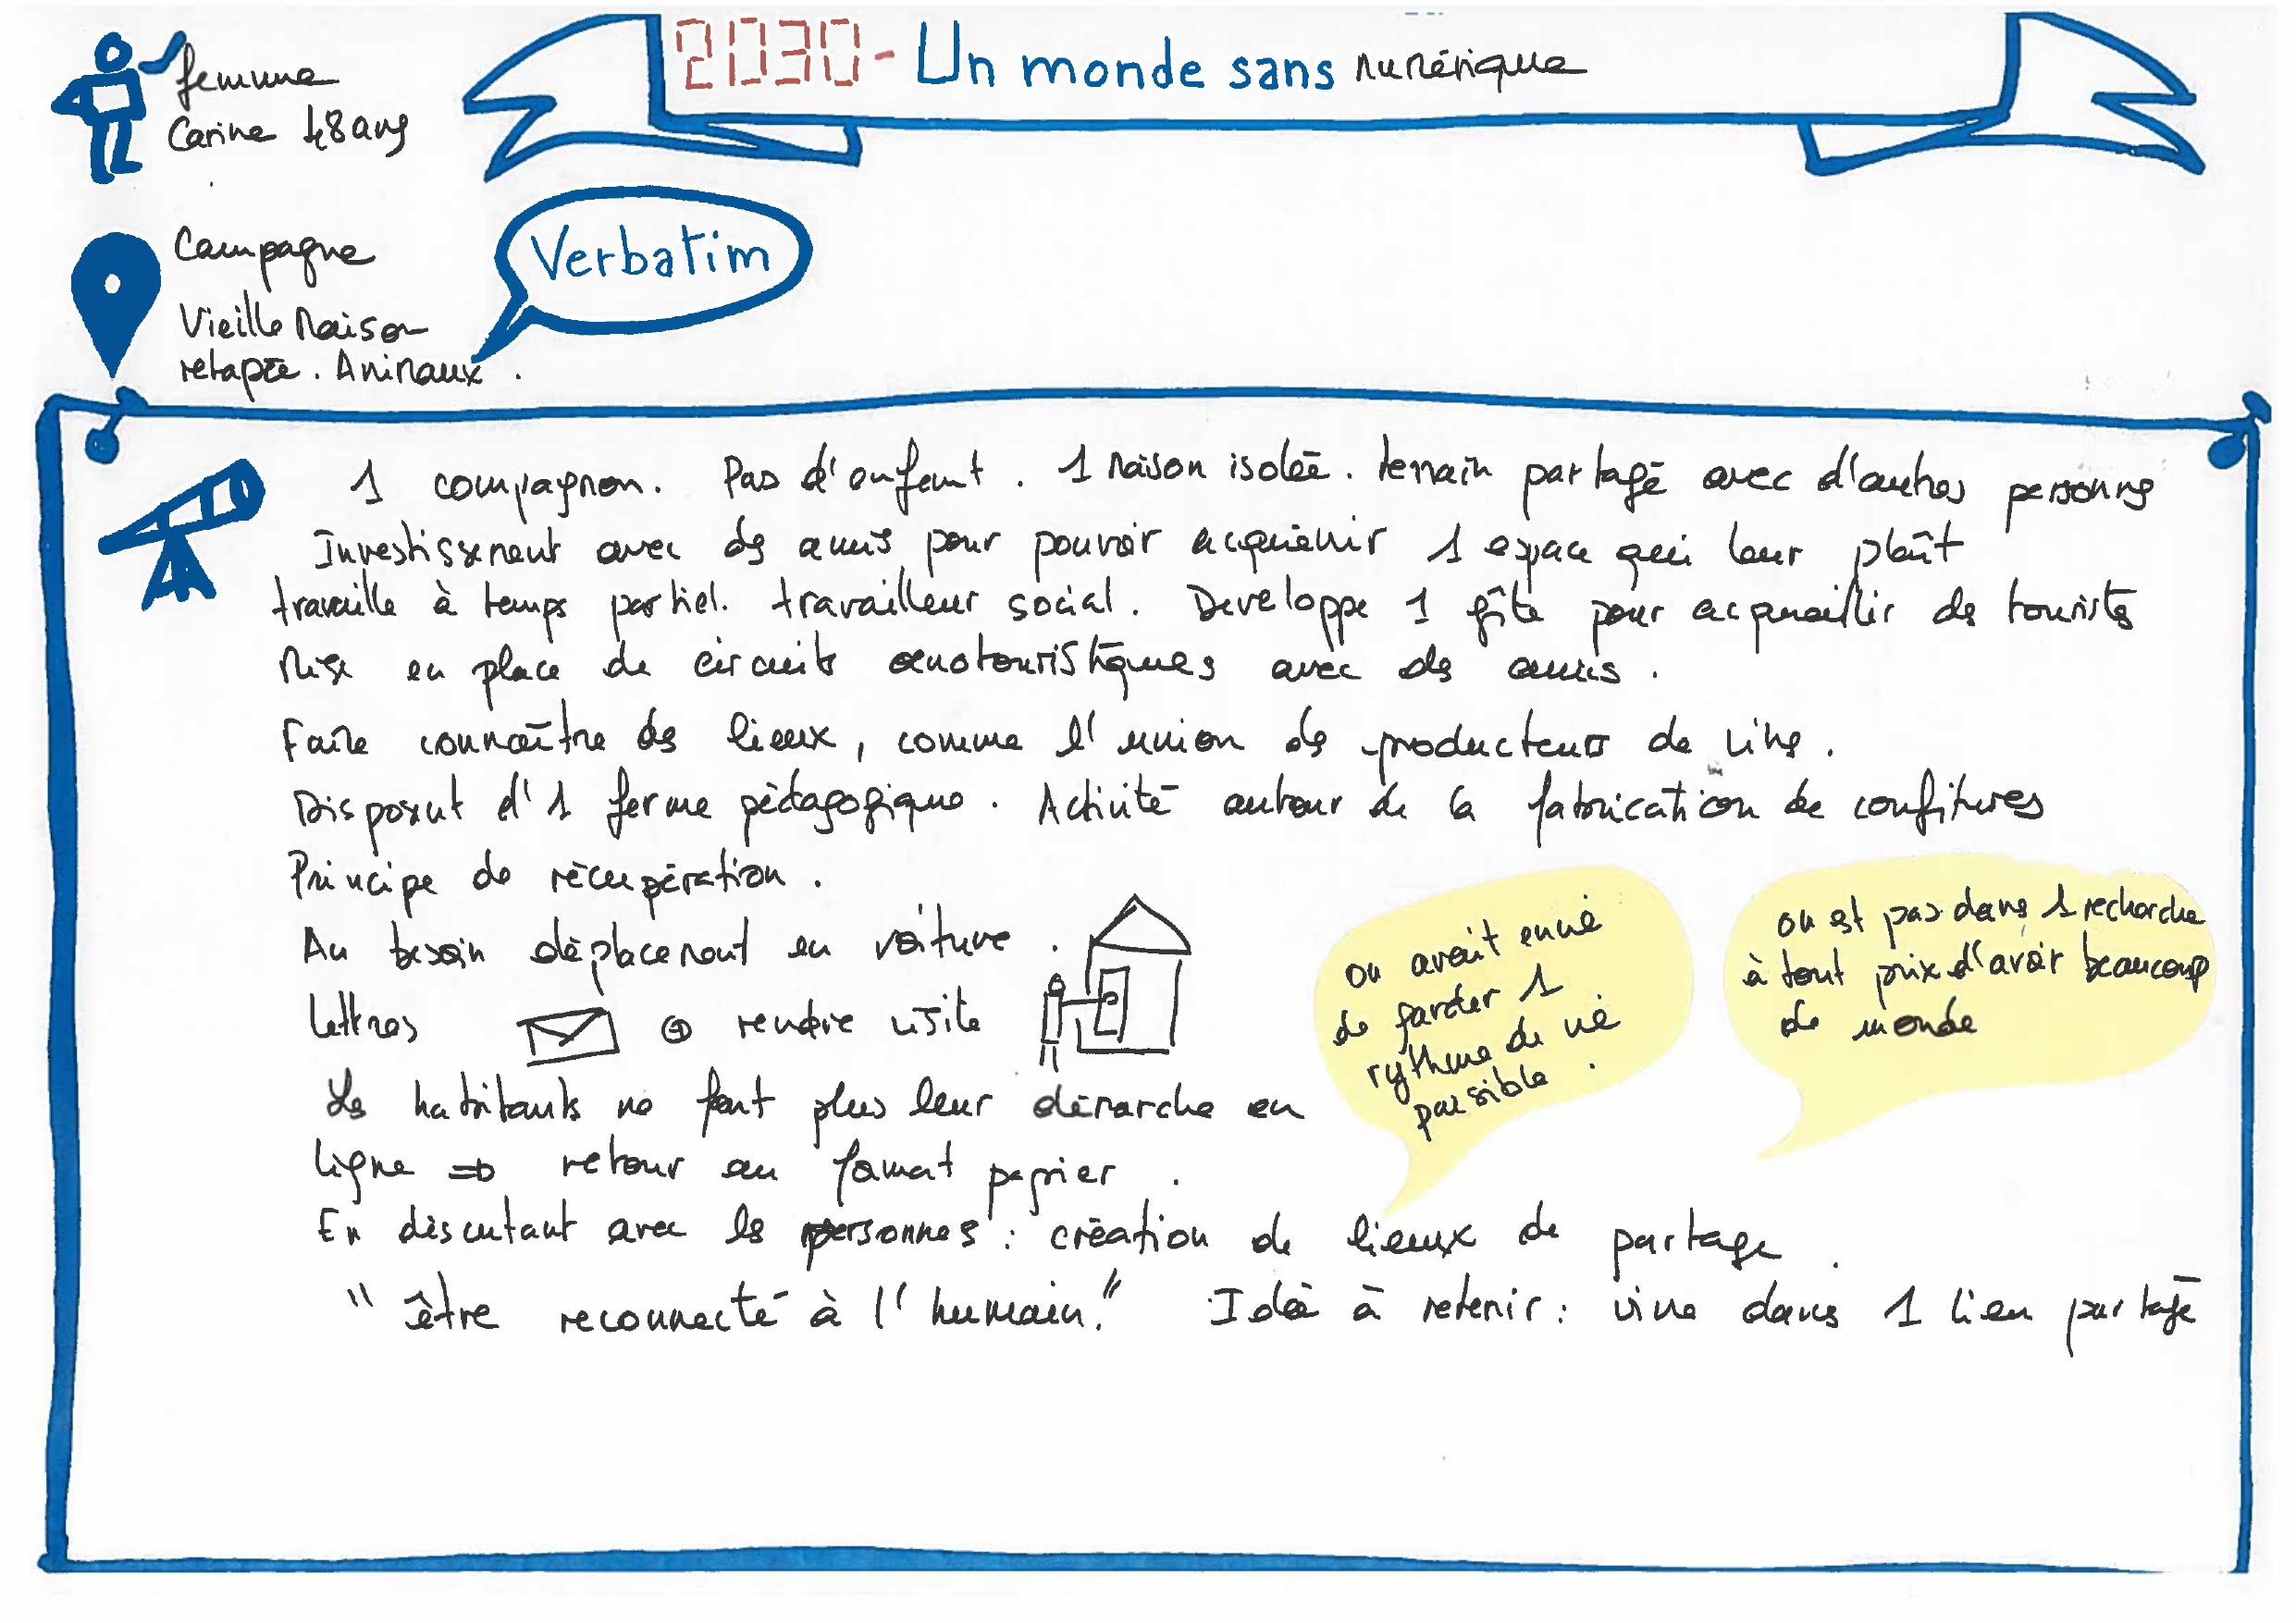 2030 - Un monde sans numérique
femme
Carine 48 ans
Campagne
Vieille Maison
retapée. Animaux.
Verbatim
1 compagnon. Pas d'enfant. 1 maison isolée. terrain partagé avec d'autres personnes
Investissement avec des amis pour pouvoir acquiérir 1 espace qui leur plaît
travaille à temps partiel. travailleur social. Developpe 1 gîte pour acqueillir des touristes
Mise en place de circuits œnotouristiques avec des amis.
Faire connaître des lieux, comme l'union des producteurs de vins.
Disposent d'1 ferme pédagogique. Activité autour de la fabrication de confitures
Principe de récupération.
Au besoin déplacement en voiture.
lettres ⊕ rendre visite
on avait envie
de garder 1
rythme de vie
paisible.
on est pas dans 1 recherche
à tout prix d'avoir beaucoup
de monde
Les habitants ne font plus leur démarche en
ligne => retour au format papier.
En discutant avec les personnes : création de lieux de partage.
"être reconnecté à l'humain." Idée à retenir : vivre dans 1 lieu partagé